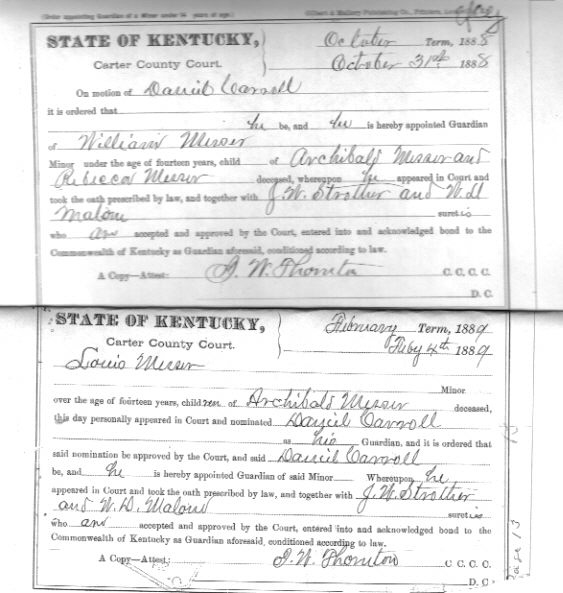 (Order appointing Guardian of a Minor under 14 years of age.)
STATE OF KENTUCKY, October Term, 1888
Carter County Court. October 31st 1888
On motion of Daniel Carroll
it is ordered that
he be, and he is hereby appointed Guardian
of William Messer
Minor under the age of fourteen years, child of Archibald Messer and
Rebecca Messer deceased, whereupon he appeared in Court and
took the oath prescribed by law, and together with J. W. Strother and W. D.
Malone sureties
who are accepted and approved by the Court, entered into and acknowledged bond to the
Commonwealth of Kentucky as Guardian aforesaid, conditioned according to law.
A Copy—Attest: J. W. Thornton C. C. C. C.
D. C.
STATE OF KENTUCKY, February Term, 1889
Carter County Court. Feby 4th 1889
Louis Messer
Minor
over the age of fourteen years, children of Archibald Messer deceased,
this day personally appeared in Court and nominated Daniel Carroll
as his Guardian, and it is ordered that
said nomination be approved by the Court, and said Daniel Carroll
be, and he is hereby appointed Guardian of said Minor Whereupon he
appeared in Court and took the oath prescribed by law, and together with J. W. Strother
and W. D. Malone sureties
who are accepted and approved by the Court, entered into and acknowledged bond to the
Commonwealth of Kentucky as Guardian aforesaid, conditioned according to law.
A Copy—Attest: J. W. Thornton C. C. C. C.
D. C.